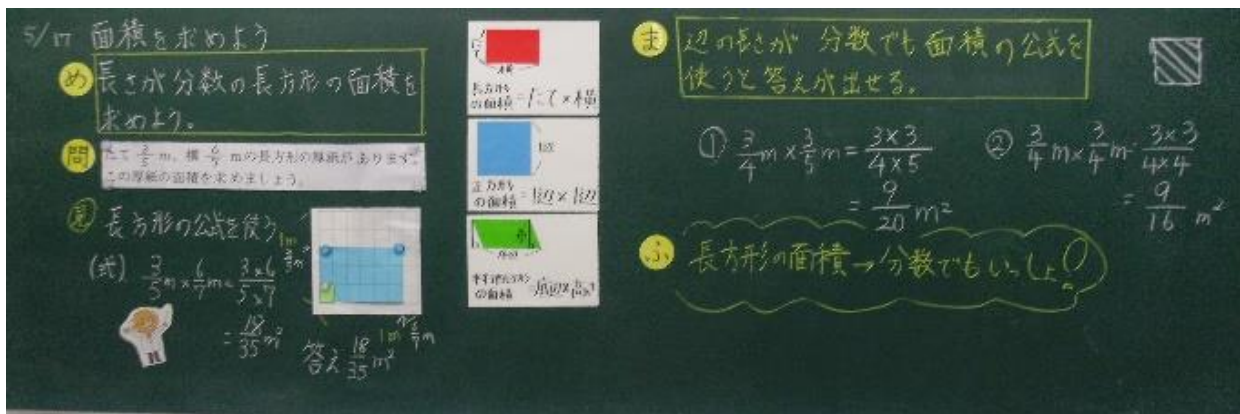 5/17 面積を求めよう
め 長さが分数の長方形の面積を
求めよう。
問 たて 3/5 m、横 6/7 mの長方形の厚紙があります。
この厚紙の面積を求めましょう。
長方形の公式を使う
(式) 3/5 m × 6/7 m = 3×6/5×7
= 18/35 m²
答え 18/35 m²
1m
3/5 m
1m
6/7 m
たて
横
長方形の面積 = たて × 横
1辺
正方形の面積 = 1辺 × 1辺
平行四辺形の面積
ま 辺の長さが 分数でも面積の公式を
使うと答えが出せる。
① 3/4 m × 3/5 m = 3×3/4×5
= 9/20 m²
② 3/4 m × 3/4 m = 3×3/4×4
= 9/16 m²
ふ 長方形の面積→分数でもいっしょ!